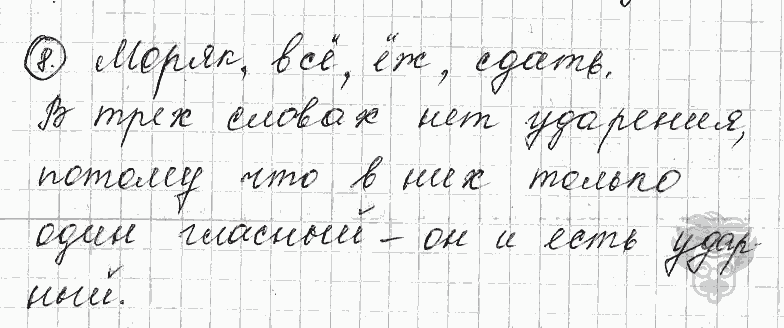 8. Моряк, всё, ёж, сдать.
В трех словах нет ударения,
потому что в них только
один гласный – он и есть удар-
ный.